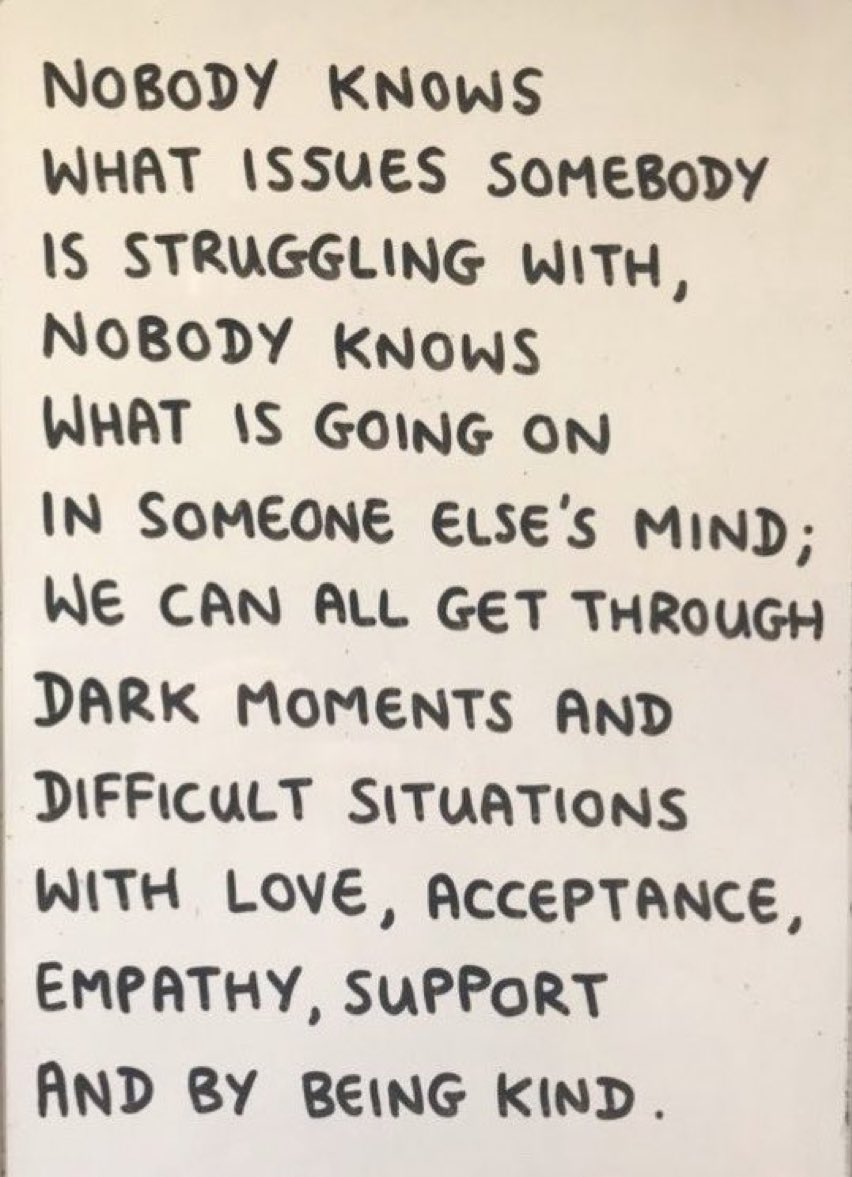 NOBODY KNOWS
WHAT ISSUES SOMEBODY
IS STRUGGLING WITH,
NOBODY KNOWS
WHAT IS GOING ON
IN SOMEONE ELSE'S MIND;
WE CAN ALL GET THROUGH
DARK MOMENTS AND
DIFFICULT SITUATIONS
WITH LOVE, ACCEPTANCE,
EMPATHY, SUPPORT
AND BY BEING KIND.